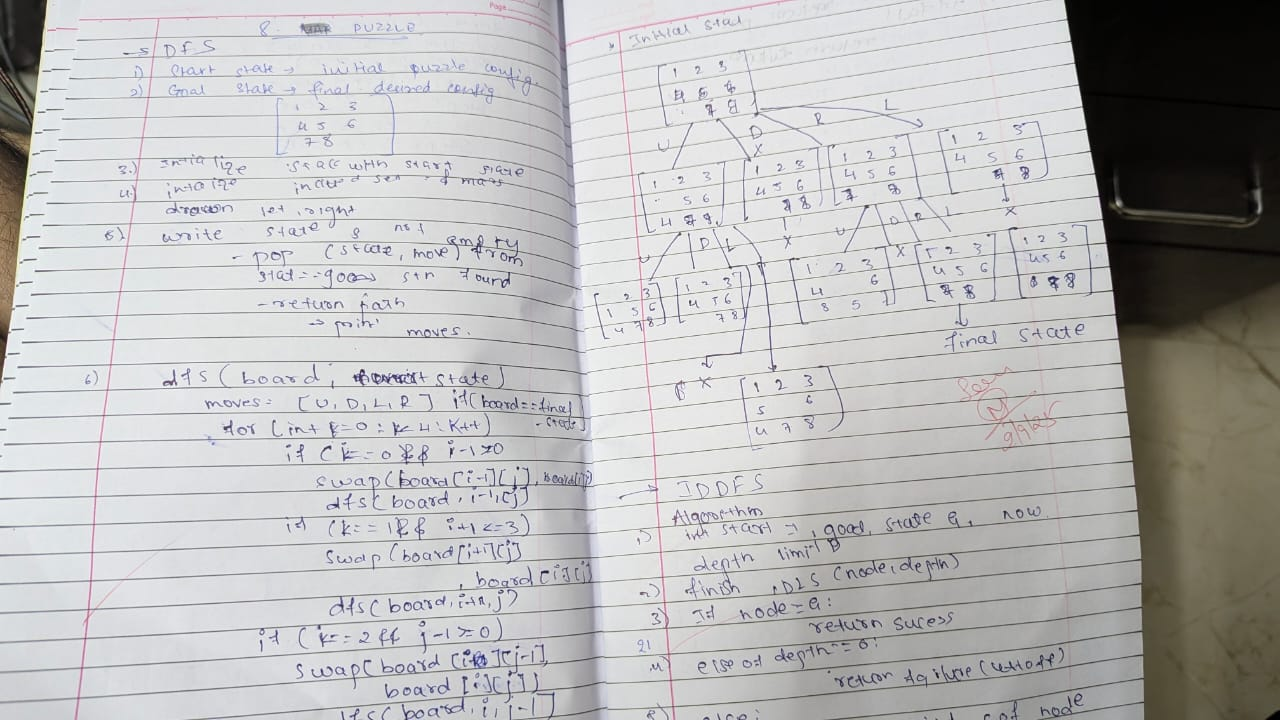 8. PUZZLE
→ DFS
1) Start state → initial puzzle config.
2) Goal state → final desired config
1 2 3
4 5 6
7 8
3.) stack with start state
4.)
right
5) write state not empty
- pop (state, move) from
found
- return path
→ print moves.
6) dfs (board, state)
moves = [U, D, L, R] if (board == final
- state)
for (int k=0 ; k<4 ; k++)
if (k==0 && i-1>0
swap(board[i-1][j], board[i][j]
dfs(board, i-1, [j]
if (k==1 && i+1<=3)
swap (board[i+1][j]
, board[i][j]
dfs(board, j)
if (k==2 && j-1>=0)
swap(board [j-1],
board[i][j])
dfs(board, i, j-1]
Page
Initial stat
1 2 3
4 5 6
7 8
U D R L
X
1 2 3
5 6
4 7 8
1 2 3
4 5 6
7 8
1 2 3
4 5 6
7 8
1 2 3
4 5 6
7 8
U D L X U D R L X
2 3
1 5 6
4 7 8
1 2 3
4 5 6
7 8
1 2 3
4 6
8 5 7
X
1 2 3
4 5 6
7 8
1 2 3
4 5 6
7 8
Final state
X
1 2 3
5 6
4 7 8
Seen
→ IDDFS
Algorithm
1) start state G, now
depth limit D
2) finish DLS (node, depth)
3) If node = G:
return sucess
21
4) else of depth == 0:
return failure (cutoff)
5) else:
of node